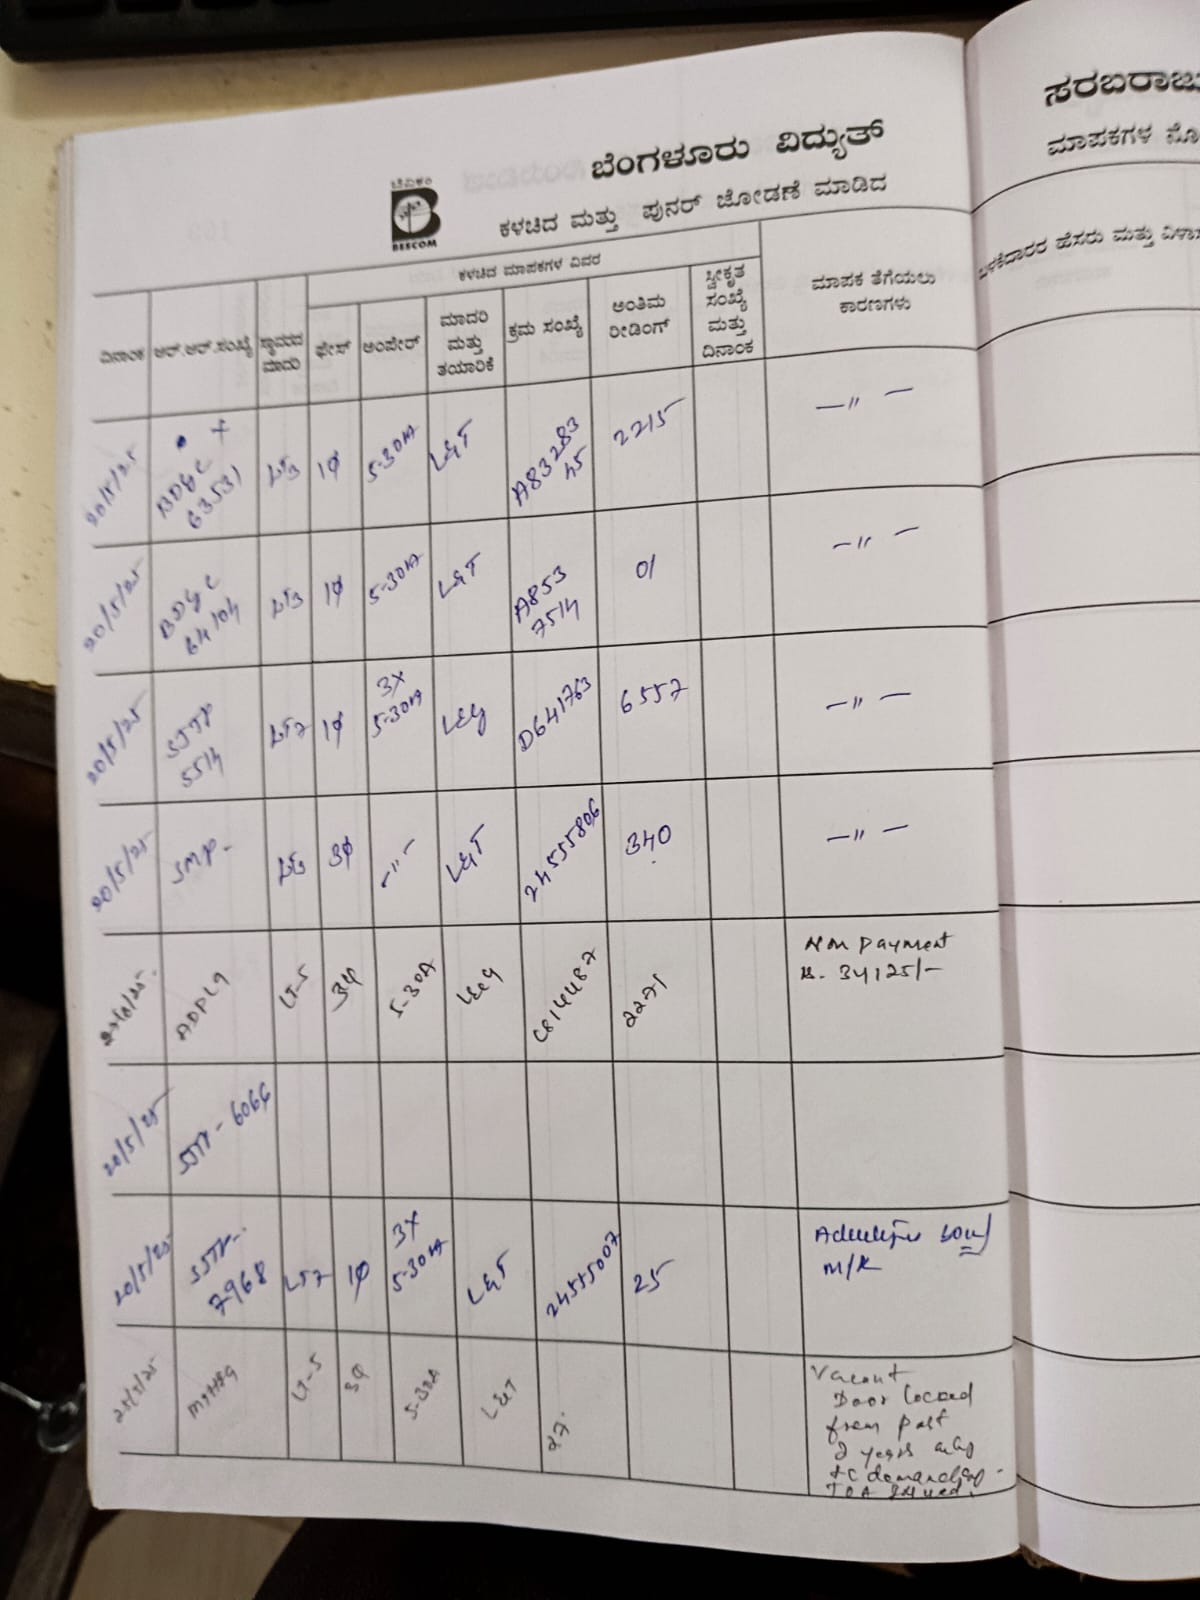 ಸರಬರಾಜು
ಮಾಪಕಗಳ
ಬೆಸಿಕಂ
BESCOM
ಬೆಂಗಳೂರು ವಿದ್ಯುತ್
ಕಳಚಿದ ಮತ್ತು ಪುನರ್ ಜೋಡಣೆ ಮಾಡಿದ
ಬಳಕೆದಾರರ ಹೆಸರು ಮತ್ತು ವಿಳಾಸ
ಕಳಚಿದ ಮಾಪಕಗಳ ವಿವರ
ದಿನಾಂಕ ಆರ್.ಆರ್.ಸಂಖ್ಯೆ ಸ್ಥಾವರದ ಮಾದರಿ ಫೇಸ್ ಅಂಪೇರ್ ಮಾದರಿ ಮತ್ತು ತಯಾರಿಕೆ ಕ್ರಮ ಸಂಖ್ಯೆ ಅಂತಿಮ ರೀಡಿಂಗ್ ಸ್ವೀಕೃತ ಸಂಖ್ಯೆ ಮತ್ತು ದಿನಾಂಕ ಮಾಪಕ ತೆಗೆಯಲು ಕಾರಣಗಳು
20/5/25 63531 LT3 1φ 5-30A L&T A8328345 2215 —〃—
20/5/25 64104 LT3 1φ 5-30A L&T A8537514 01 —〃—
20/5/25 5514 LT7 1φ 3X 5-30A L&G D641763 6557 —〃—
20/5/25 SMP- LT3 3φ —〃— L&T 24555806 340 —〃—
ADPL9 LT-5 3φ 5-30A L&G C814487 2271 Non payment
Rs. 34125/-
20/5/25 SJTP-6064
20/5/25 SJTP-7968 LT7 1φ 3X 5-30A L&T 24555007 25
M/R
LT-5 3φ 5-30A L&T 27. Vacant
Door locked
from past
2 years